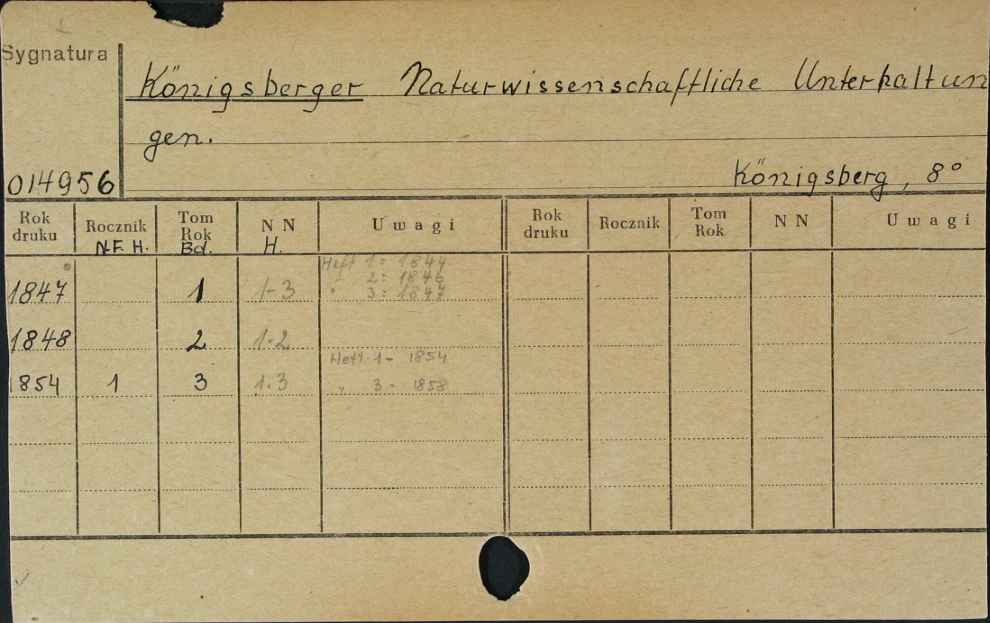 Sygnatura
Königsberger Naturwissenschaftliche Unterhaltun
gen.
014956
Königsberg, 8°
Rok druku Rocznik Tom Rok N N U w a g i Rok druku Rocznik Tom Rok N N U w a g i
N.F. H. Bd. H.
Heft 1: 1844
" 2: 1846
1847 1 1-3 " 3: 1847
1848 2 1-2
Heft 1- 1854
1854 1 3 1.3 " 3- 1858